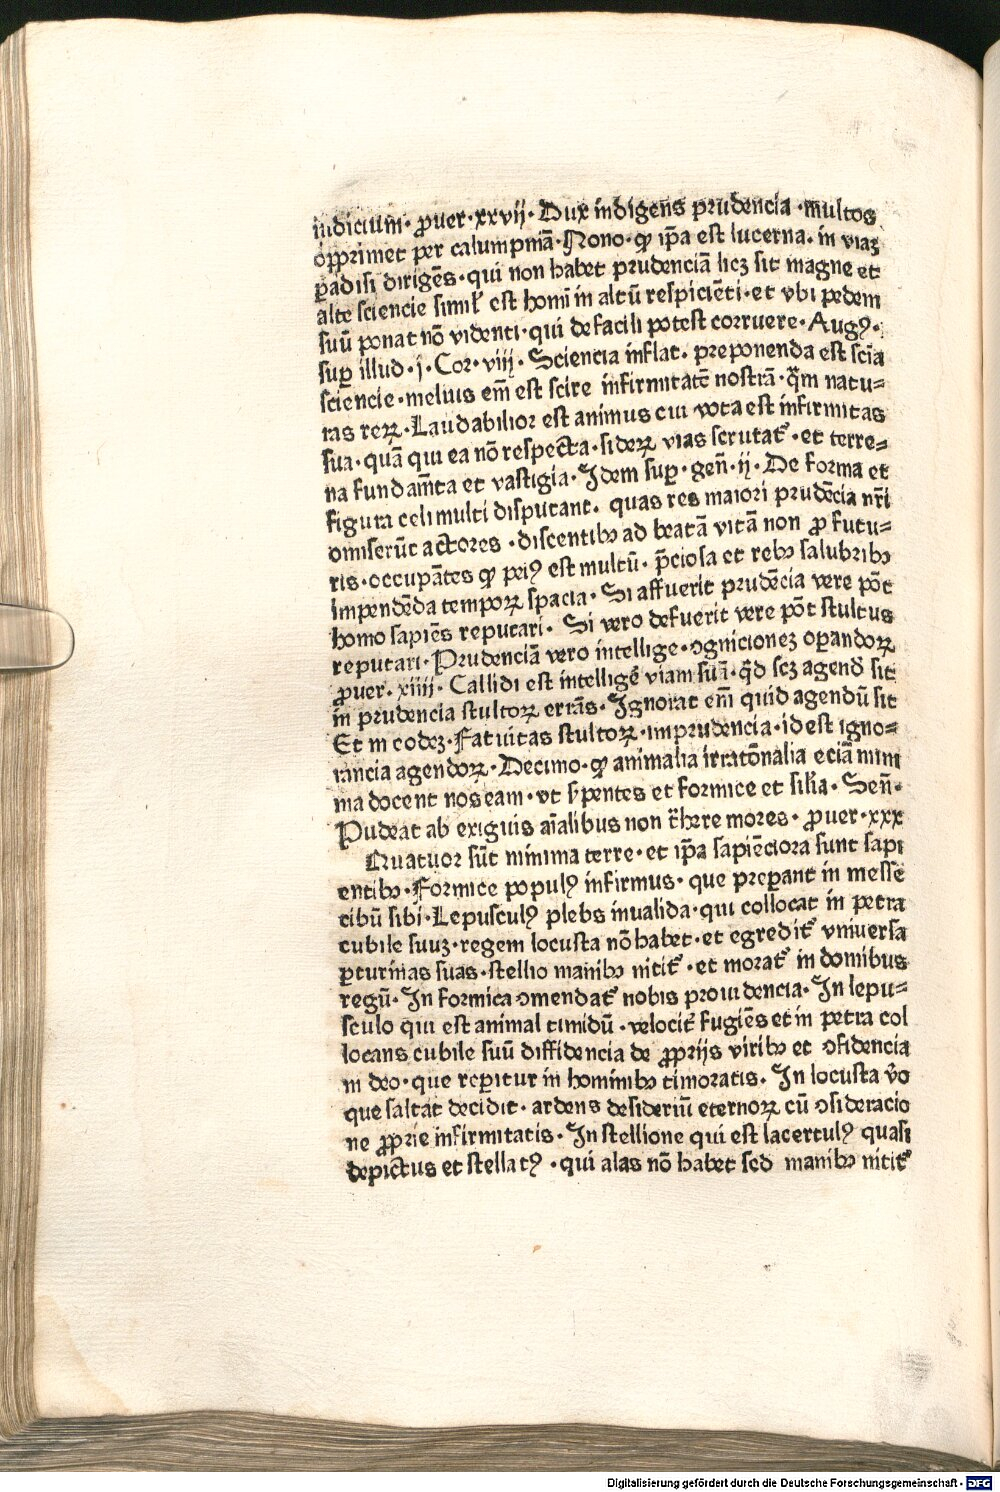 iudicium· ꝓuer·xxvij· Dux indigens prudencia ·multos
opprimet per calumpniā·Nono·ꝙ ip̄a est lucerna· in viaꝫ
ꝑadisi dirigēs·qui non habet prudenciā licꝫ sit magne et
alte sciencie simil' est homī in altū respiciēti·et vbi pedem
suū ponat nō videnti·qui de facili potest corruere·Augꝰ·
suꝑ illud·j·Cor·viij· Sciencia inflat· preponenda est scīa
sciencie·melius em̄ est scire infirmitatē nostrā·q̄m natu=
ras reꝝ·Laudabilior est animus cui nota est infirmitas
sua·quā qui ea nō respecta·sideꝝ vias scrutat᷑·et terre=
na fundam̄ta et vastigia·Idem suꝑ·gen̄·ij·De forma et
figura celi multi disputant· quas res maiori prudēcia nr̄i
omiserūt actores ·discentibꝫ ad beatā vitā non ꝓ futu=
ris·occupātes ꝙ peiꝰ est multū· p̄ciosa et rebꝫ salubribꝫ
impendēda temporꝝ spacia· Si affuerit prudēcia vere pōt
homo sapiēs reputari· Si vero defuerit vere pōt stultus
reputari·Prudenciā vero intellige·ꝯgnicionez oꝑandoꝝ
ꝓuer·xiiij· Callidi est intelligē viam suā·q̄d scꝫ agend̄ sit
in prudencia stultoꝝ errās·Ignorat em̄ quid agendū sit
Et in eodeꝫ·Fatuitas stultoꝝ·imprudencia·id est igno=
rancia agendoꝝ·Decimo·ꝙ animalia irratōnalia eciā mini
ma docent nos eam·vt s̄pentes et formice et silīa· Sen̄·
Pudeat ab exiguis aīalibus non t̄here mores· ꝓuer·xxx
Quatuor sūt minima terre·et ip̄a sapiēciora sunt sapi
entibꝫ·Formice populꝰ infirmus·que preꝑant in messe
cibū sibi·Lepusculꝰ plebs inualida·qui collocat in petra
cubile suuꝫ·regem locusta nō habet·et egredit᷑ vniuersa
ꝑ turmas suas·stellio manibꝫ nitit᷑·et morat᷑ in domibus
regū·In formica ꝯmendat᷑ nobis prouidencia·In lepu=
sculo qui est animal timidū·velocit᷑ fugiēs et in petra col
locans cubile suū diffidencia de ꝓprijs viribꝫ et ꝯfidencia
in deo·que reꝑitur in hominibꝫ timoratis· In locusta v̄o
que saltat decidit·ardens desideriū eternoꝝ cū ꝯsideracio
ne ꝓprie infirmitatis·In stellione qui est lacertulꝰ quasi
depictus et stellatꝰ ·qui alas nō habet sed manibꝫ nitit᷑
Digitalisierung gefördert durch die Deutsche Forschungsgemeinschaft - DFG